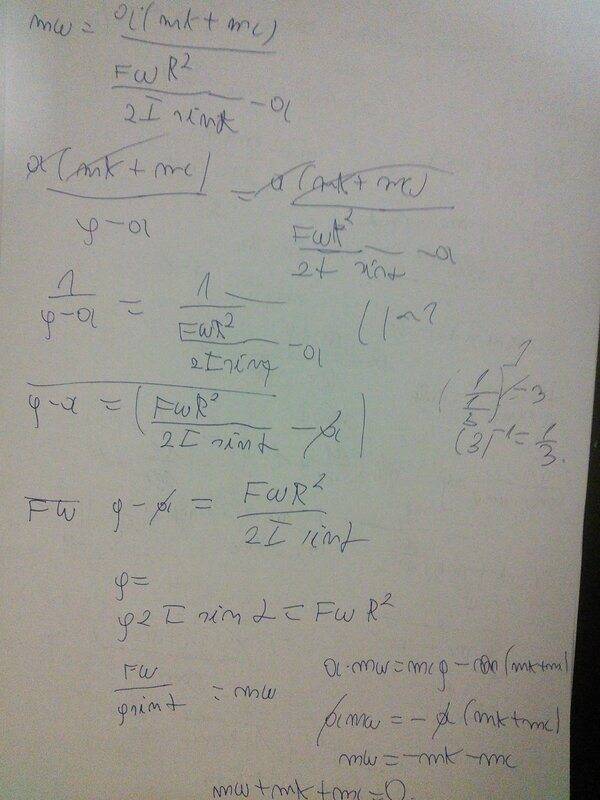 mw = a(mk + mc) / (FwR² / 2I sinα - a)
a(mk + mc) / (φ - a) = a(mk + mc) / (FwR² / 2I sinα - a)
1 / (φ - a) = 1 / (FwR² / 2I sinα - a)
φ - a = (FwR² / 2I sinα - a)
(1 / (1/3))⁻¹ = 3
(3)⁻¹ = 1/3.
Fw φ - a = FwR² / 2I sinα
φ =
φ 2I sin α = FwR²
Fw / φ sinα = mw
a·mw = mcg - a(mk+m)
a mw = -a (mk+mc)
mw = -mk - mc
mw + mk + mc = 0.